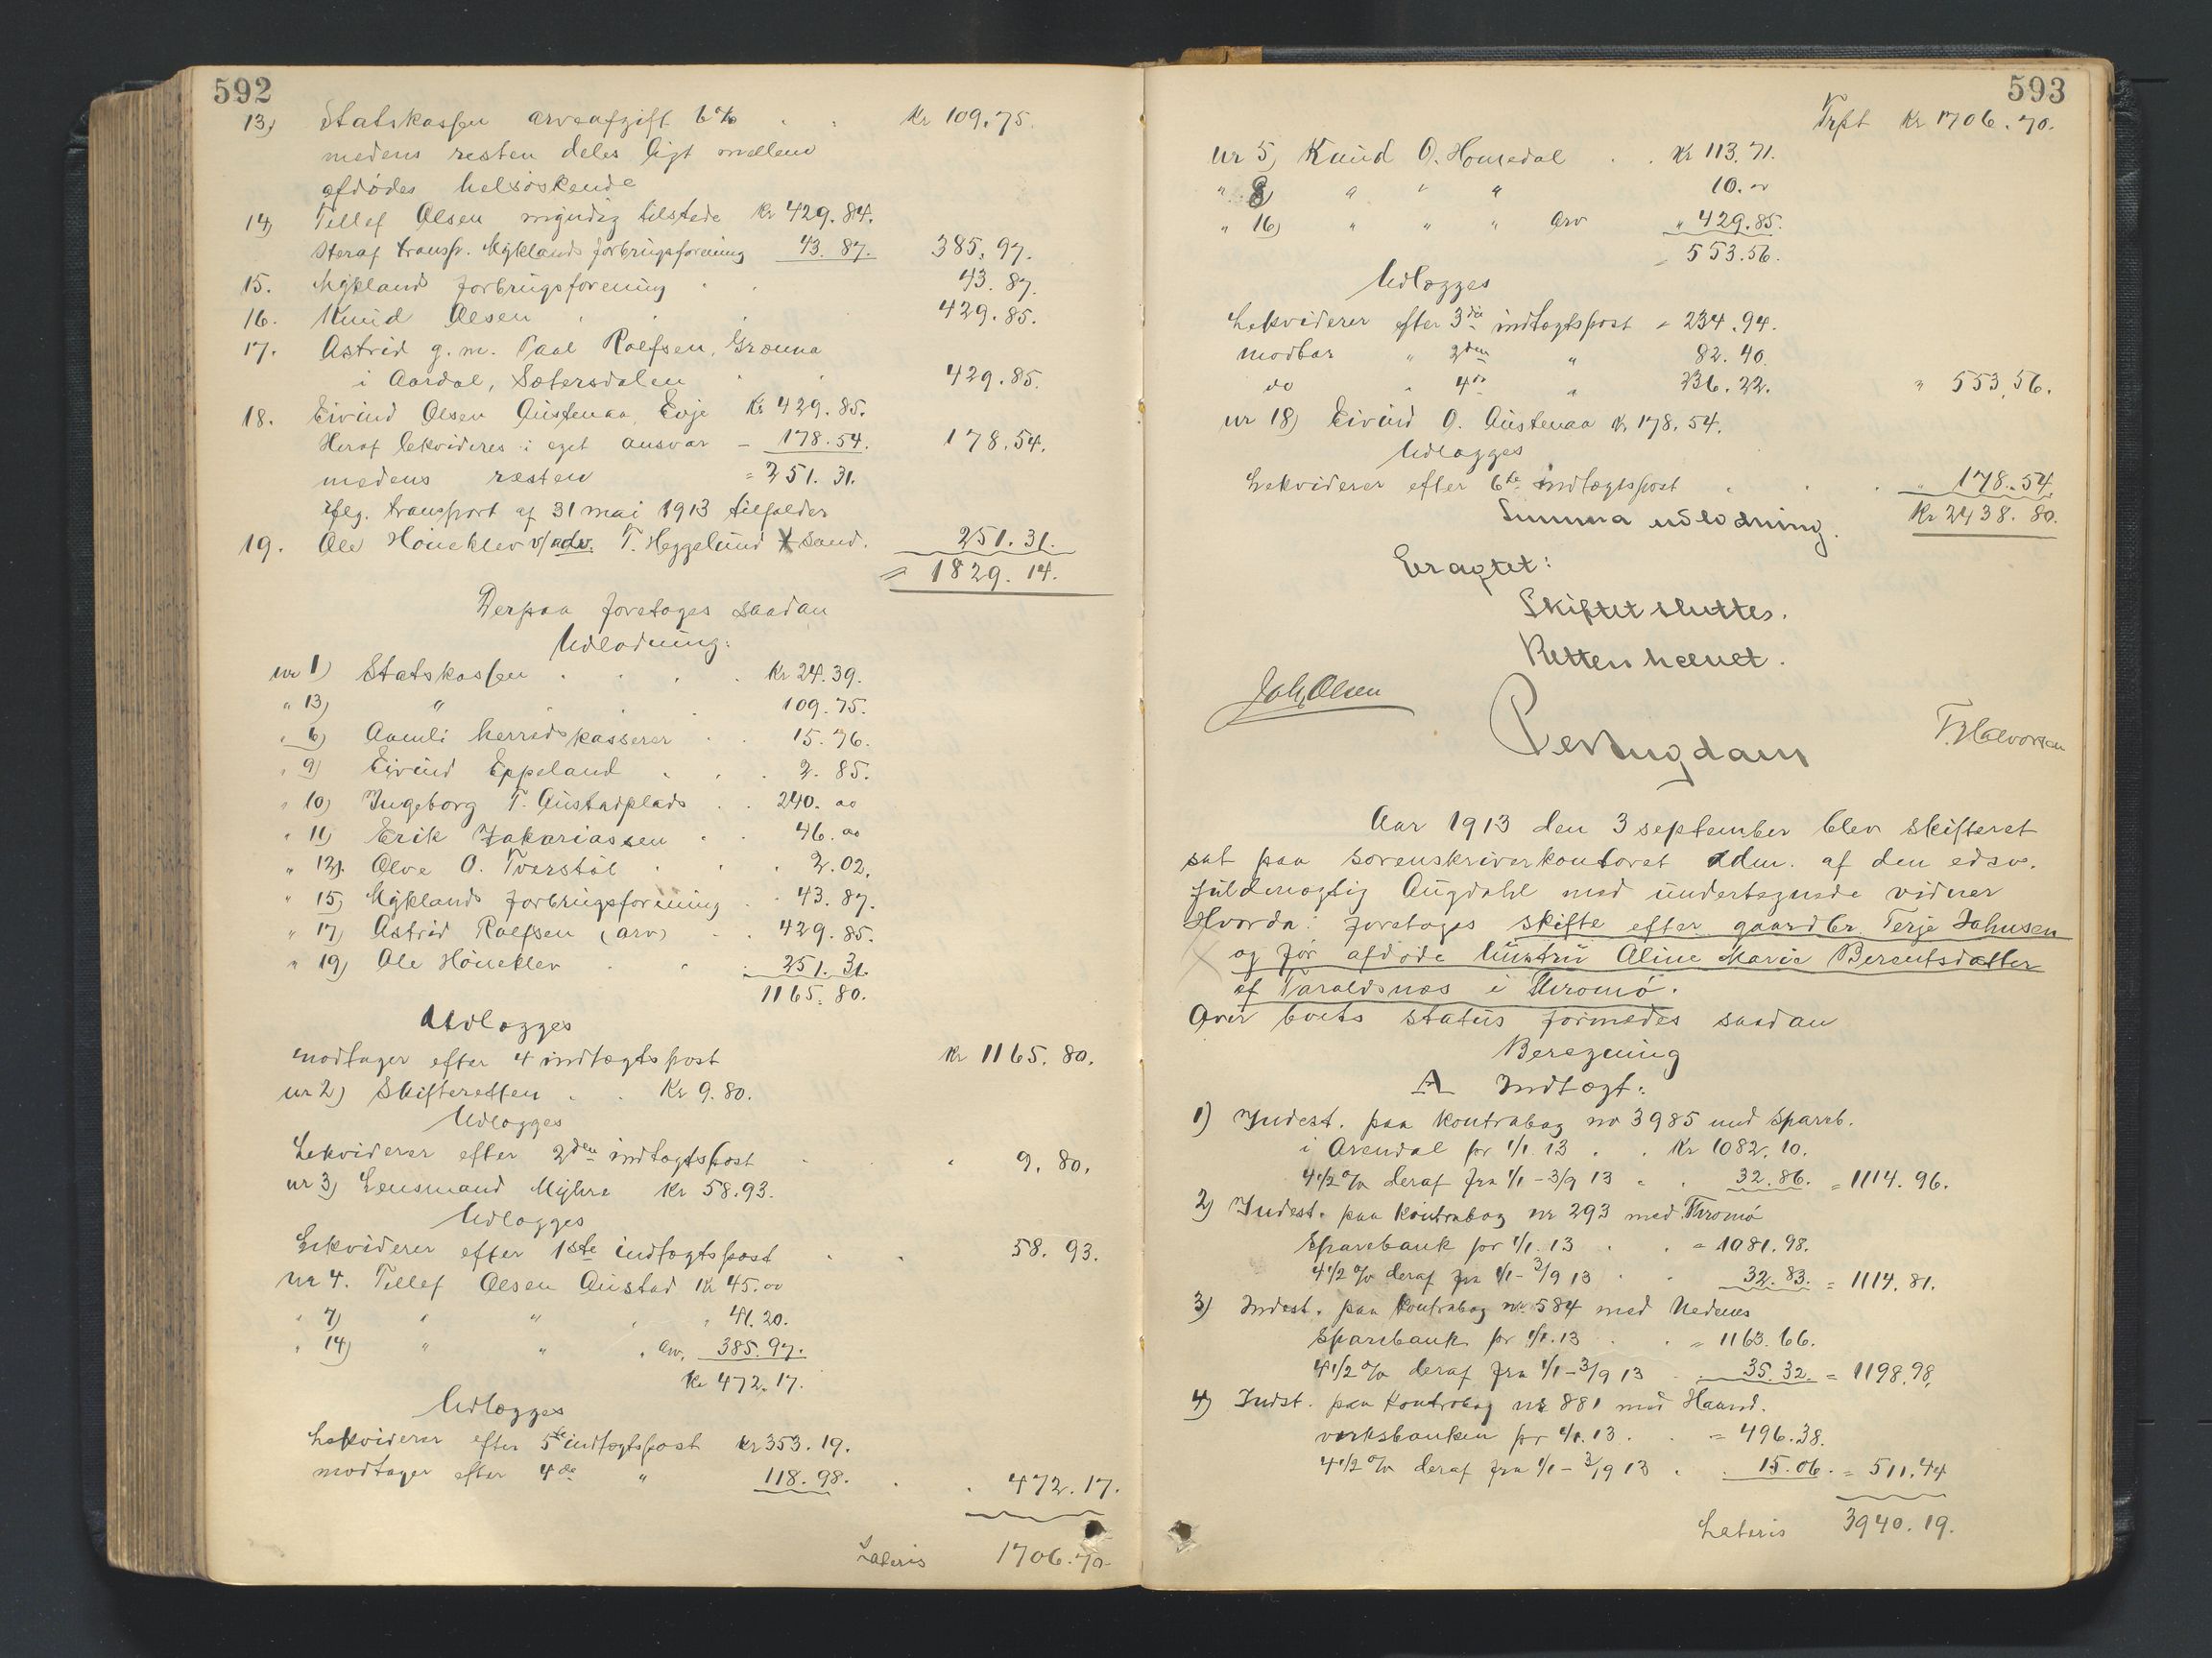 592
13) Statskassen arveafgift 6% . . Kr 109.75.
medens resten deles ligt mellem
afdødes helsøskende
14) Tellef Olsen myndig tilstede Kr 429.84.
Heraf transp. Myklands forbrugsforening 43.87. 385.97.
15. Mykland forbrugsforening . . 43.87.
16. Knud Olsen . . . 429.85.
17. Astrid g.m. Paal Rolfsen, Grönna
i Aardal, Sætersdalen . . 429.85.
18. Eivind Olsen Austenaa, Evje Kr 429.85.
Heraf lekvideres i eget ansvar - 178.54. 178.54.
medens resten = 251.31.
iflg. transport af 31 mai 1913 tilfalder
19. Ole Høneklev v/adv. T. Heggelund Sand. 251.31.
= 1829.14.
Derpaa foretages saadan
Udlodning:
nr 1) Statskassen . . . Kr 24.39.
" 13) " . . 109.75.
" 6) Aamli herredskasserer . . 15.76.
" 9) Eivind Eppeland . . . 2.85.
" 10) Ingeborg T. Austadplads . . 240.00
" 11) Erik Zakariassen . . 46.00
" 12). Olve O. Tverstøl . . . 2.02.
" 15) Myklands forbrugsforening . . 43.87.
" 17) Astrid Rolfsen (arv) . . 429.85.
" 19) Ole Høneklev . . . 251.31.
1165.80.
Udlægges
modtager efter 4 indtægtspost Kr 1165.80.
nr 2) Skifteretten . . Kr 9.80.
Udlægges
Lekviderer efter 2den indtægtspost . . 9.80.
nr 3) Lensmand Myhre Kr 58.93.
Udlægges
Lekviderer efter 1ste indtægtspost . . 58.93.
Nr 4. Tellef Olsen Austad Kr 45.00
" 7) " " " " 41.20.
" 14) " " " arv, 385.97.
Kr 472.17.
Udlægges
Lekviderer efter 5te indtægtspost Kr 353.19.
modtager efter 4de " 118.98. . . 472.17.
Lateris 1706.70.
593
Trpt Kr 1706.70.
nr 5) Knud O. Homedal . . Kr 113.71.
" 8) " " " 10.00
" 16) " " " arv " 429.85.
553.56.
Udlægges
Lekviderer efter 3die indtægtspost " 234.94.
modtar " 2den " 82.40.
do " 4de " 236.22. " 553.56.
nr 18) Eivind O. Austenaa Kr 178.54.
Udlægges
Lekviderer efter 6te indtægtspost . . . " 178.54.
Summa udlodning. Kr 2438.80.
Eragtet:
Skiftet sluttes.
Retten hævet.
Joh. Olsen
Per Augdahl
T. Halvorsen
Aar 1913 den 3 september blev skifteret
sat paa sorenskriverkontoret adm. af den edsv.
fuldmægtig Augdahl med undertegnede vidner
Hvorda: foretoges skifte efter gaardbr. Terje Johnsen
og før afdøde hustru Aline Marie Berentsdatter
af Taraldsnæs i Thromø.
Over boets status formedes saadan
Beregning
A Indtægt:
1) Indest. paa kontrabog no 3985 med spareb.
i Arendal pr 1/1.13 . . Kr 1082.10.
4 1/2 % deraf fra 1/1 - 3/9 13 . . 32.86. = 1114.96.
2) Indest. paa kontrabog nr 293 med Thromø
Sparebank pr 1/1.13 . . = 1081.98.
4 1/2 % deraf fra 1/1 - 3/9 13 . . 32.83. = 1114.81.
3) Indest. paa kontrabog nr 584 med Nedenes
Sparebank pr 1/1.13 . . = 1163.66.
4 1/2 % deraf fra 1/1 - 3/9 13 . . 35.32. = 1198.98.
4) Indst. paa kontrabog nr 881 med Haand.
verksbanken pr 1/1.13 . . = 496.38.
4 1/2 % deraf fra 1/1 - 3/9 13 . . 15.06. = 511.44
Lateris 3940.19.